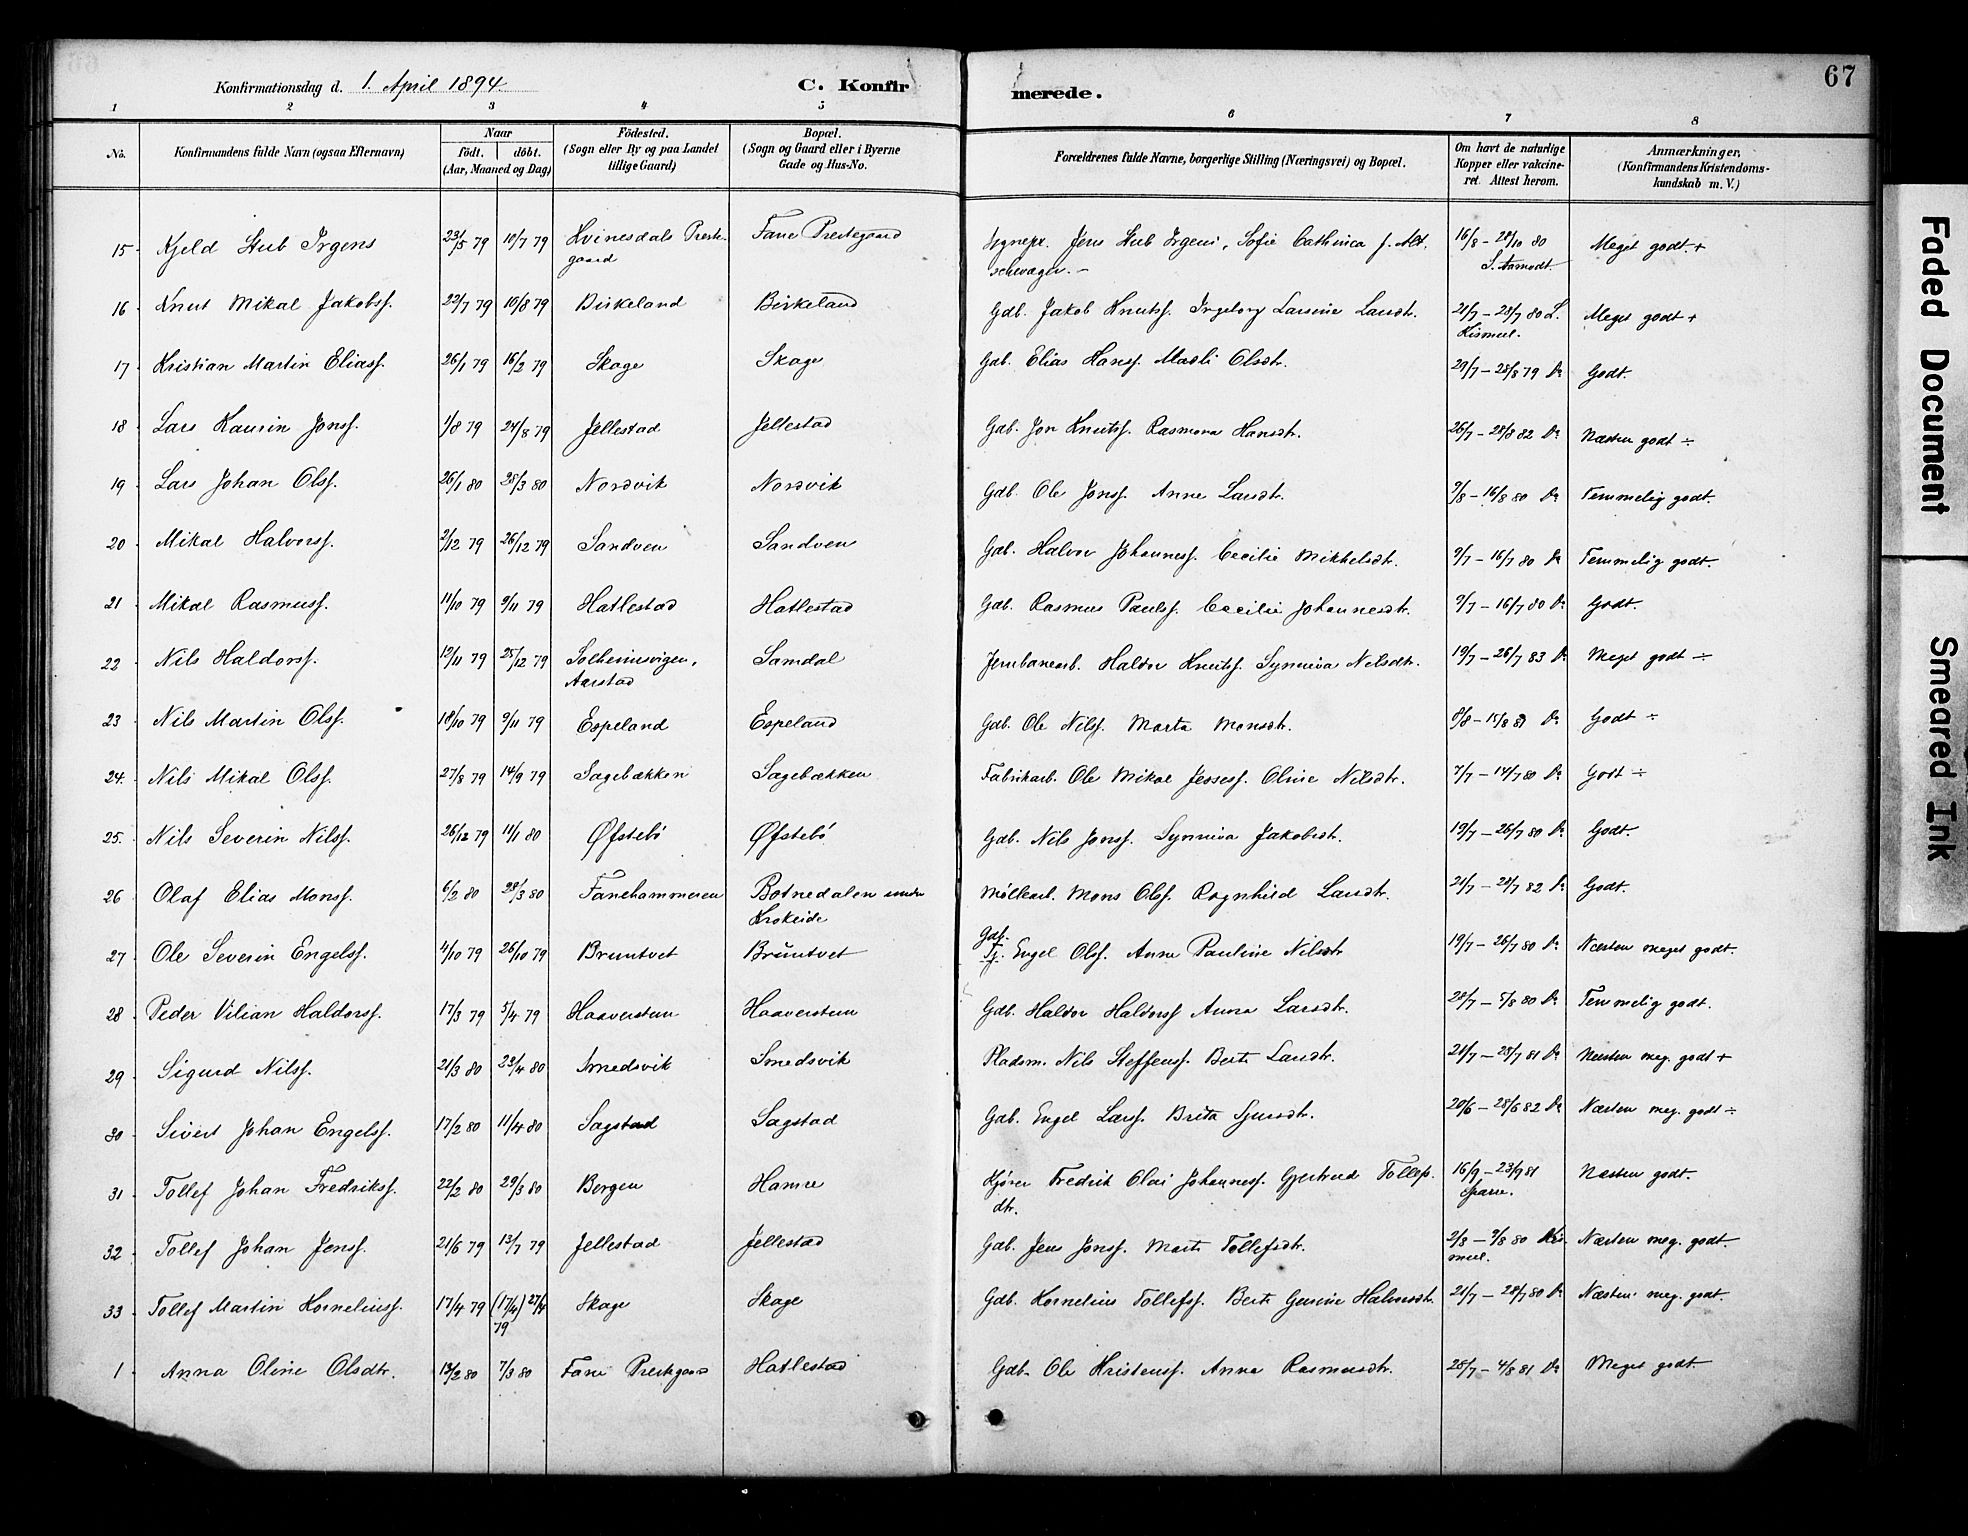 Konfirmationsdag d. 1. April 1894
C. Konfir
merede.
67
1 2 3 4 5 6 7 8
No.
Konfirmandens fulde Navn (ogsaa Efternavn)
Naar
födt. döbt.
(Aar, Maaned og Dag)
Födested.
(Sogn eller By og paa Landet
tillige Gaard)
Bopæl.
(Sogn og Gaard eller i Byerne
Gade og Hus-No.
Forældrenes fulde Navne, borgerlige Stilling (Næringsvei) og Bopæl.
Om havt de naturlige
Kopper eller vakcine-
ret. Attest herom.
Anmærkninger,
(Konfirmandens Kristendoms-
kundskab m. V.)
15 Kjeld Stub Irgens 23/5 79 10/7 79 Kvinesdals Preste- Fane Prestegaard Sognepr. Jens Stub Irgens, Sofie Cathinca f. Alt. 16/8 - 28/10 80 Meget godt +
gaard schwager. - S. Aamodt.
16 Knut Mikal Jakobsf. 22/7 79 10/8 79 Birkeland Birkeland Gdb. Jakob Knutsf. Ingeborg Larsine Larsdtr. 21/7 - 28/7 80 L. Meget godt +
Kismul.
17 Kristian Martin Eliasf. 26/1 79 16/2 79 Skage Skage Gdb. Elias Hansf. Madli Olsdtr. 29/7 - 28/8 79 Do Godt.
18 Lars Kaurin Jonsf. 1/8 79 24/8 79 Jellestad Jellestad Gdb. Jon Knutsf. Rasmona Hansdtr. 26/7 - 28/8 82 Do Næsten godt ÷
19 Lars Johan Olsf. 26/1 80 28/3 80 Nordvik Nordvik Gdb. Ole Jonsf. Anne Larsdtr. 9/8 - 16/8 80 Do Temmelig godt.
20 Mikal Halvorsf. 2/12 79 26/12 79 Sandven Sandven Gdb. Halvor Johannesf. Cecilie Mikkelsdtr. 9/7 - 16/7 80 Do Temmelig godt.
21 Mikal Rasmusf. 11/10 79 9/11 79 Hatlestad Hatlestad Gdb. Rasmus Paulsf. Cecilie Johannesdtr. 9/7 - 16/7 80 Do Godt.
22 Nils Haldorsf. 12/11 79 25/12 79 Solheimsvigen, Samdal Jernbanearb. Haldor Knutsf. Synneva Nilsdtr. 19/7 - 26/7 83 Do Meget godt ÷
Aarstad
23 Nils Martin Olsf. 18/10 79 9/11 79 Espeland Espeland Gdb. Ole Nilsf. Marta Monsdtr. 8/8 - 15/8 81 Do Godt ÷
24. Nils Mikal Olsf. 27/8 79 14/9 79 Sagebækken Sagebækken Fabrikarb. Ole Mikal Jessesf. Oline Nilsdtr. 7/7 - 14/7 80 Do Godt ÷
25. Nils Severin Nilsf. 26/12 79 11/1 80 Øfstebö Øfstebö Gdb. Nils Jonsf. Synneva Jakobsdtr. 19/7 - 26/7 80 Do Godt.
26 Olaf Elias Monsf. 6/2 80 28/3 80 Fanehammeren Botnedalen under Möllearb. Mons Olsf. Ragnhild Larsdtr. 21/7 - 28/7 82 Do Godt.
Krokeide
27 Ole Severin Engelsf. 4/10 79 26/10 79 Bruntvet Bruntvet Gdb. Tj. Engel Olsf. Anna Pauline Nilsdtr 19/7 - 26/7 80 Do Næsten meget godt.
28 Peder Vilian Haldorsf. 17/3 79 5/4 79 Haaverstun Haaverstun Gdb. Haldor Haldorsf Anna Larsdtr. 28/7 - 5/8 80 Do Temmelig godt.
29 Sigurd Nilsf. 21/3 80 23/4 80 Smedsvik Smedsvik Pladsm. Nils Steffensf. Berte Larsdtr. 21/7 - 28/7 81 Do Næsten meg. godt +
30 Sivert Johan Engelsf. 17/2 80 11/4 80 Sagstad Sagstad Gdb. Engel Larsf. Brita Sjursdtr. 20/6 - 28/6 82 Do Næsten meg. godt ÷
31 Tollef Johan Fredriksf. 22/2 80 29/3 80 Bergen Hamre Kjörer Fredrik Olai Johannesf. Gjertrud Tollefs. 16/9 - 23/9 81 Næsten godt.
dtr. Sparre.
32 Tollef Johan Jensf. 21/6 79 13/7 79 Jellestad Jellestad Gdb. Jens Jonsf. Marte Tollefsdtr. 2/8 - 9/8 80 Kis- Næsten meg. godt.
mul.
33 Tollef Martin Korneliusf. 17/4 79 (17/4) 27/4 Skage Skage Gdb. Kornelius Tollefsf. Berte Gurine Halvorsdtr. 21/7 - 28/7 80 Do Næsten meg. godt.
79
1 Anna Oline Olsdtr. 13/2 80 7/3 80 Fane Prestgaard Hatlestad Gdb. Ole Kristensf. Anna Rasmusdtr. 28/7 - 4/8 81 Do Meget godt
Faded Document
Smeared Ink